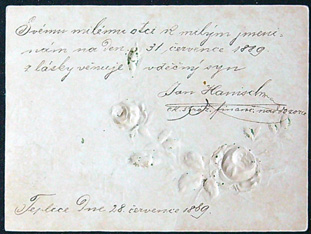 Svému milému otci k milým jmeni-
nám na den 31. července 1889
z lásky věnuje vděčný syn
Jan
Teplice Dne 28. července 1889.